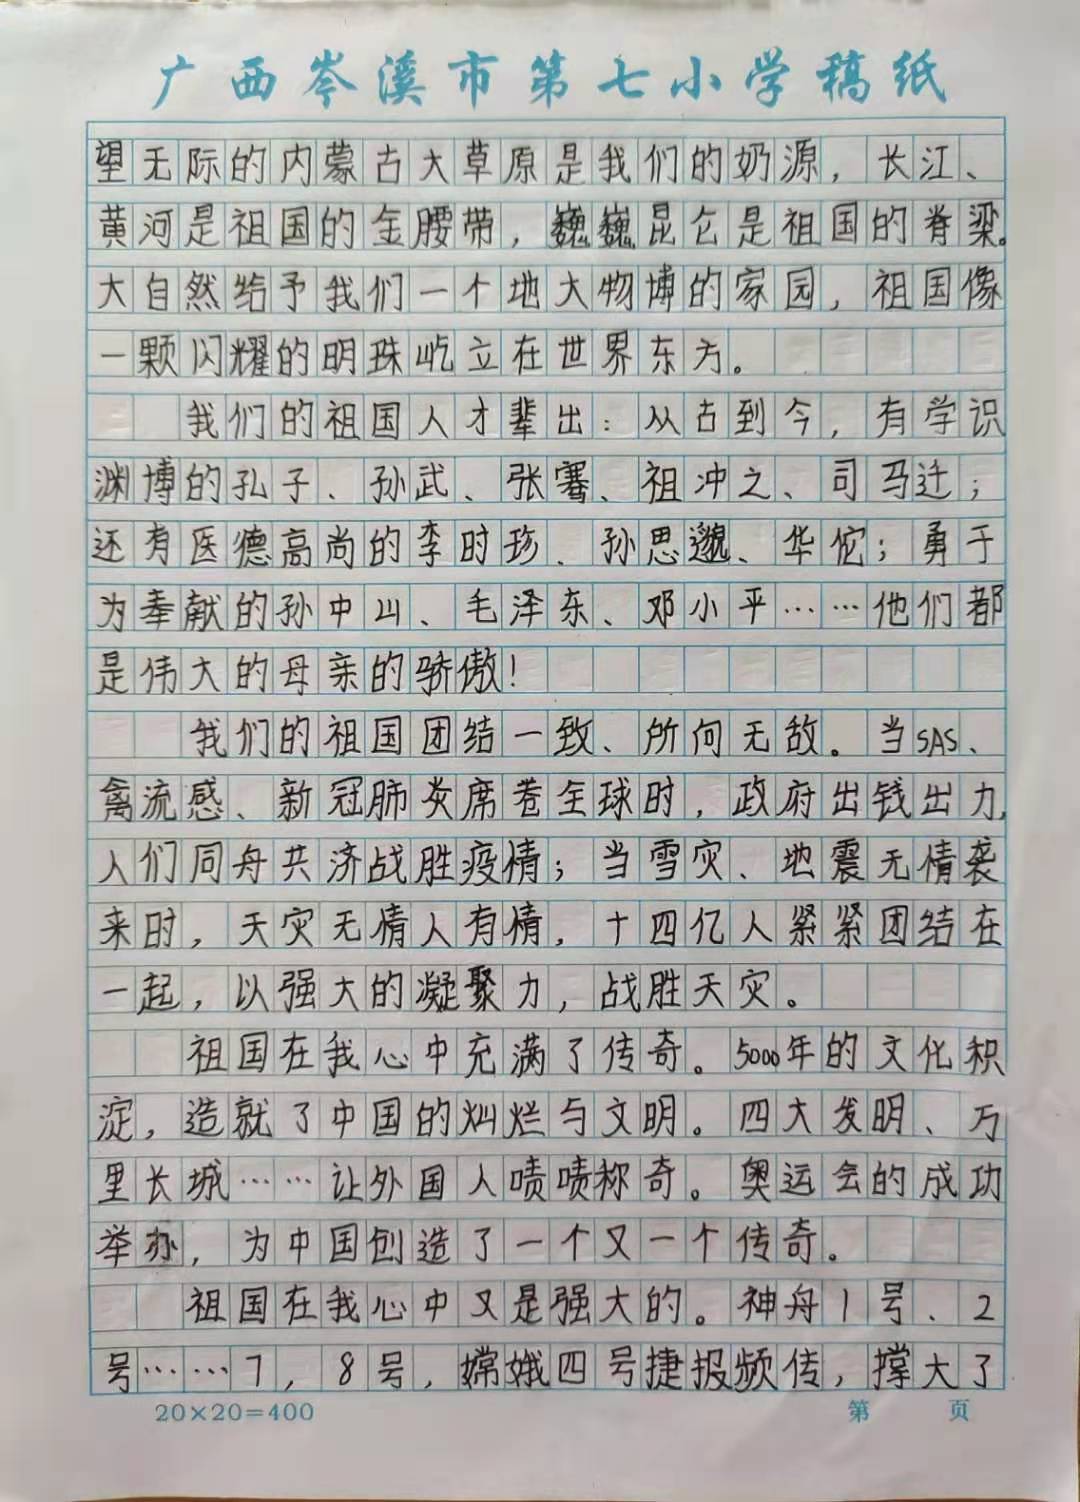 广西岑溪市第七小学稿纸
望无际的内蒙古大草原是我们的奶源，长江、
黄河是祖国的金腰带，巍巍昆仑是祖国的脊梁。
大自然给予我们一个地大物博的家园，祖国像
一颗闪耀的明珠屹立在世界东方。
我们的祖国人才辈出：从古到今，有学识
渊博的孔子、孙武、张骞、祖冲之、司马迁；
还有医德高尚的李时珍、孙思邈、华佗；勇于
为奉献的孙中山、毛泽东、邓小平……他们都
是伟大的母亲的骄傲！
我们的祖国团结一致、所向无敌。当SAS、
禽流感、新冠肺炎席卷全球时，政府出钱出力，
人们同舟共济战胜疫情；当雪灾、地震无情袭
来时，天灾无情人有情，十四亿人紧紧团结在
一起，以强大的凝聚力，战胜天灾。
祖国在我心中充满了传奇。5000年的文化积
淀，造就了中国的灿烂与文明。四大发明、万
里长城……让外国人啧啧称奇。奥运会的成功
举办，为中国创造了一个又一个传奇。
祖国在我心中又是强大的。神舟1号、2
号……7，8号，嫦娥四号捷报频传，撑大了
20×20=400 第 页